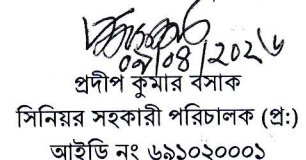 ০৯/০৪/২০২৬
প্রদীপ কুমার বসাক
সিনিয়র সহকারী পরিচালক (প্র:)
আইডি নং ৬৯১০২০০০১